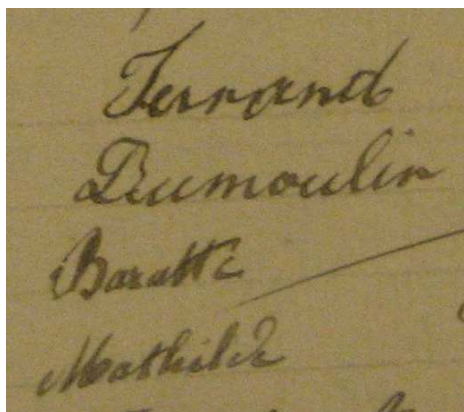 Ferrand
Dumoulin
Baratte
Mathilde